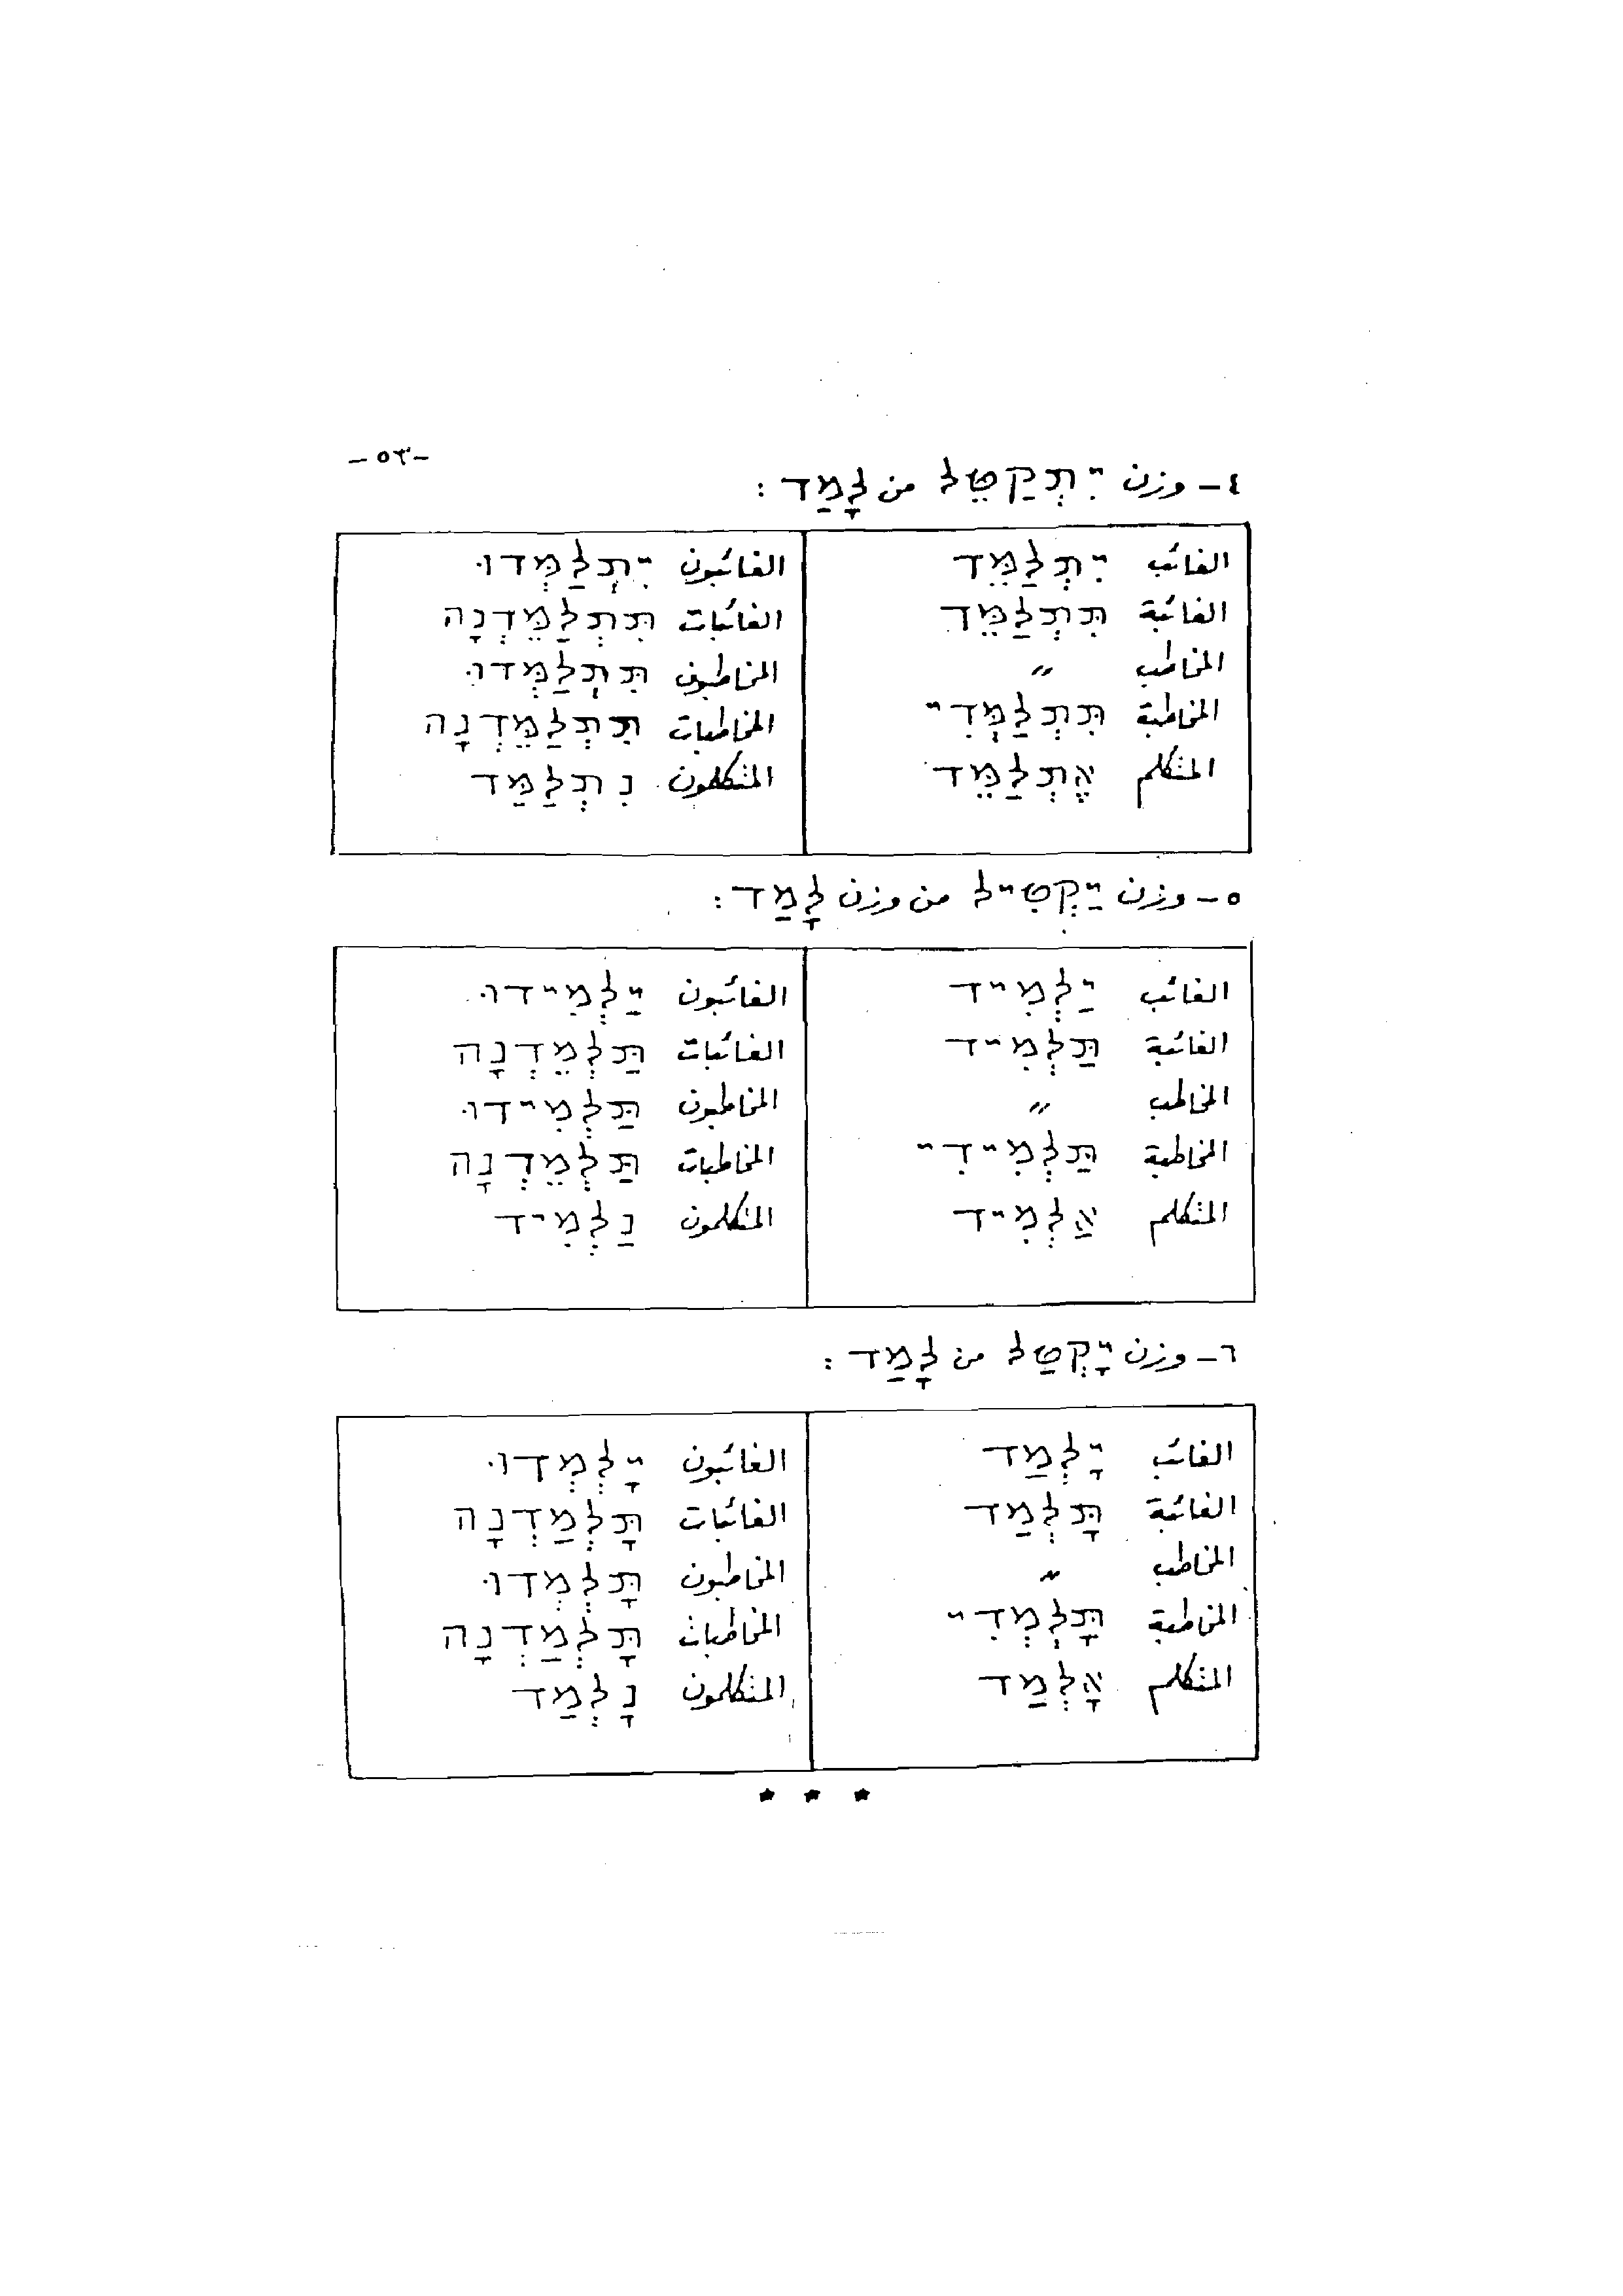 -٥٣-
٤- وزن יִתְקַטֵּל من לָמַד :
الغائب יִתְלַמֵּד الغائبون יִתְלַמְּדוּ
الغائبة תִּתְלַמֵּד الغائبات תִּתְלַמֵּדְנָה
المخاطب ״ المخاطبون תִּתְלַמְּדוּ
المخاطبة תִּתְלַמְּדִי المخاطبات תִּתְלַמֵּדְנָה
المتكلم אֶתְלַמֵּד المتكلمون נִתְלַמַּד
٥- وزن יַקְטִיל من وزن לָמַד :
الغائب יַלְמִיד الغائبون יַלְמִידוּ
الغائبة תַּלְמִיד الغائبات תַּלְמֵדְנָה
المخاطب ״ المخاطبون תַּלְמִידוּ
المخاطبة תַּלְמִידִי المخاطبات תַּלְמֵדְנָה
المتكلم אַלְמִיד المتكلمون נַלְמִיד
٦- وزن יָקְטַל من לָמַד :
الغائب יָלְמַד الغائبون יָלְמְדוּ
الغائبة תָּלְמַד الغائبات תָּלְמַדְנָה
المخاطب ״ المخاطبون תָּלְמְדוּ
المخاطبة תָּלְמְדִי المخاطبات תָּלְמַדְנָה
المتكلم אָלְמַד المتكلمون נָלְמַד
* * *